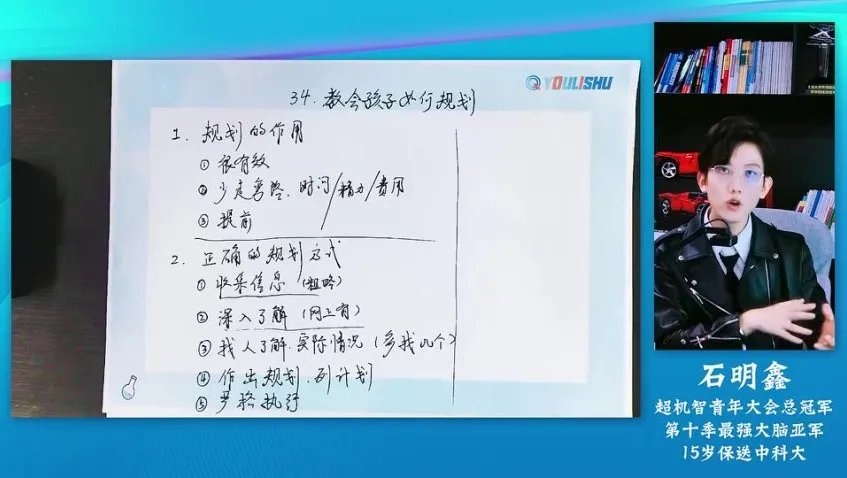 YOULISHU
34.教会孩子如何规划
1. 规划的作用
① 很有效
② 少走弯路.时间/精力/费用
③ 提前
2. 正确的规划方式
① 收集信息(粗略)
② 深入了解(网上有)
③ 找人了解.实际情况(多找几个)
④ 作出规划.列计划
⑤ 严格执行
石明鑫
超机智青年大会总冠军
第十季最强大脑亚军
15岁保送中科大